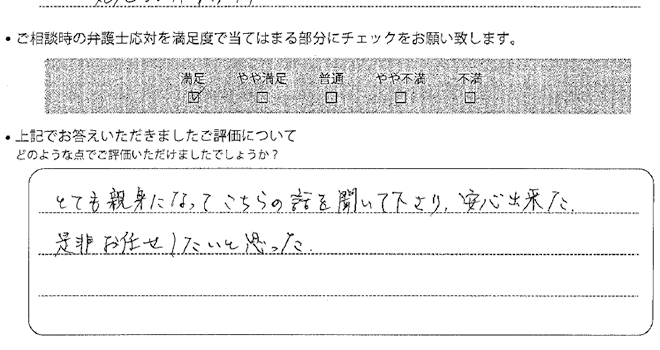 ・ご相談時の弁護士応対を満足度で当てはまる部分にチェックをお願い致します。
満足 やや満足 普通 やや不満 不満
☑ □ □ □ □
・上記でお答えいただきましたご評価について
どのような点でご評価いただけましたでしょうか？
とても親身になってこちらの話を聞いて下さり、安心出来た。
是非お任せしたいと思った。